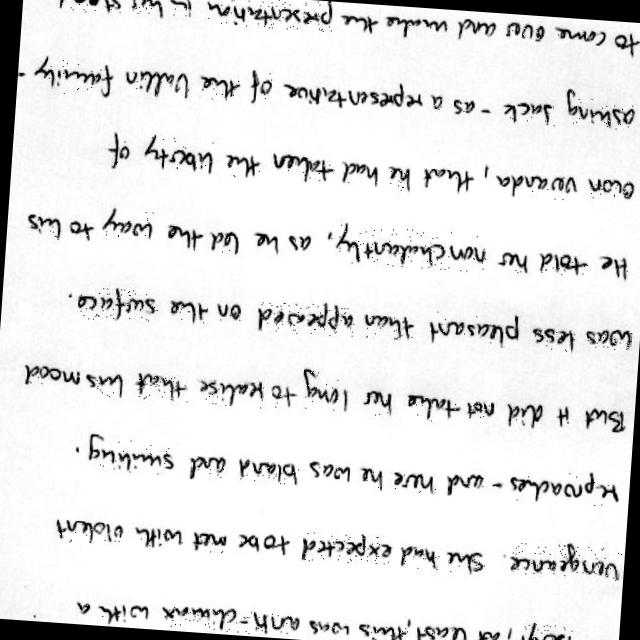 at least, this was anti-climax with a
vengeance. She had expected to be met with violent
reproaches - and here he was bland and smiling.
But it did not take her long to realise that his mood
was less pleasant than appeared on the surface.
He told her nonchalantly, as he led the way to his
own veranda, that he had taken the liberty of
asking Jack - as a representative of the Vallin family -
to come over and make the presentation in his